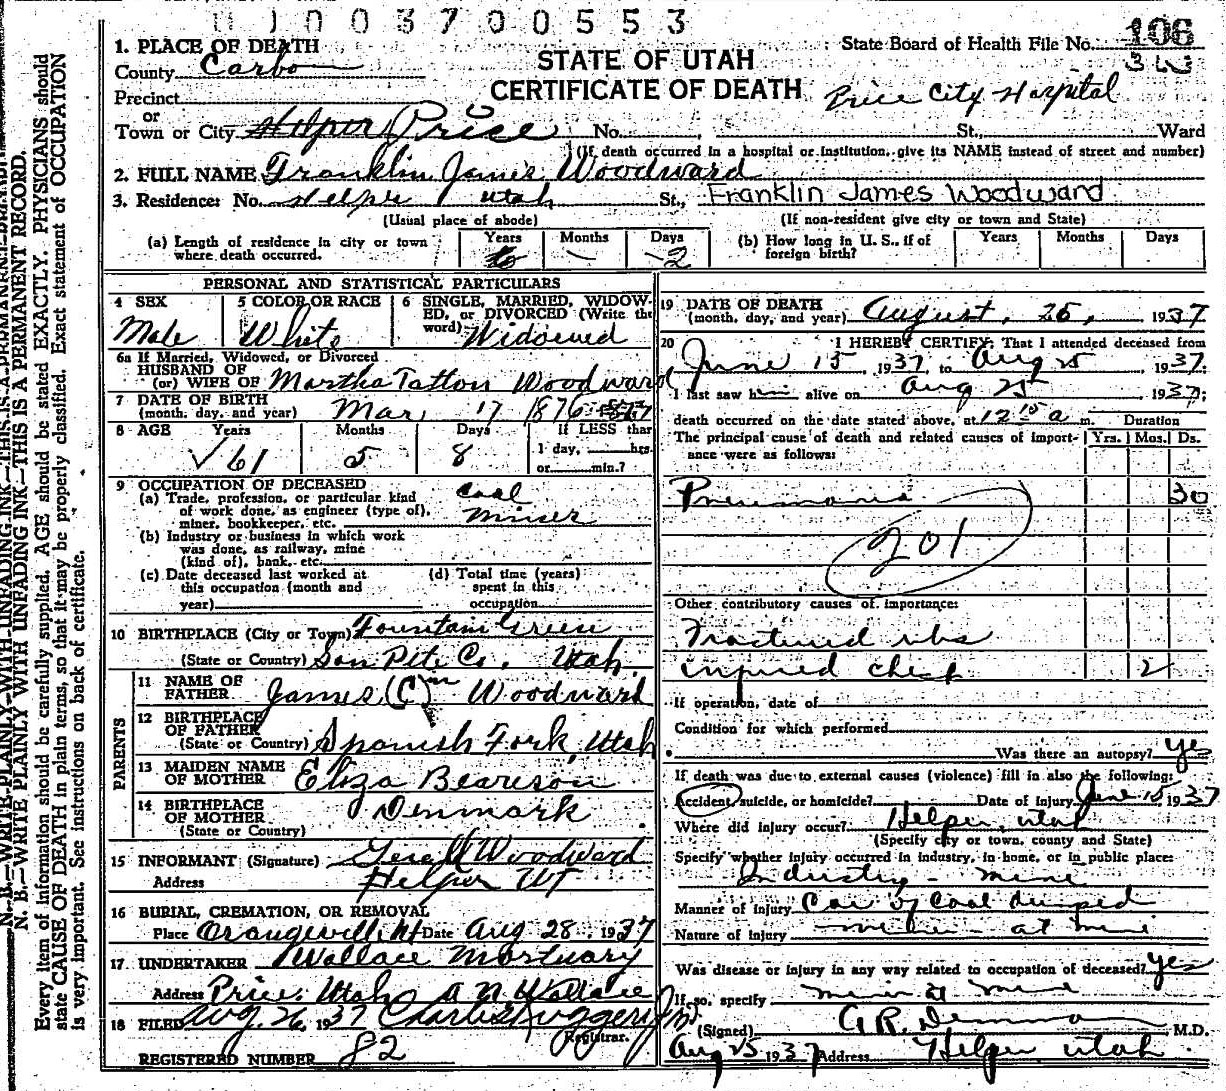 0 0 3 7 0 0 5 5 3
State Board of Health File No. 106
STATE OF UTAH
CERTIFICATE OF DEATH
Price City Hospital
1. PLACE OF DEATH
County Carbon
Precinct
or
Town or City Helper Price No. St., Ward
(If death occurred in a hospital or institution, give its NAME instead of street and number)
2. FULL NAME Franklin James Woodward
3. Residence: No. Helper Utah St., Franklin James Woodward
(Usual place of abode) (If non-resident give city or town and State)
(a) Length of residence in city or town where death occurred. Years Months — Days -2
(b) How long in U. S., if of foreign birth? Years Months Days
PERSONAL AND STATISTICAL PARTICULARS
4 SEX Male
5 COLOR OR RACE White
6 SINGLE, MARRIED, WIDOWED, or DIVORCED (Write the word) Widowed
6a If Married, Widowed, or Divorced
HUSBAND OF
(or) WIFE OF Martha Tatton Woodward
7 DATE OF BIRTH
(month, day, and year) Mar 17 1876
8 AGE Years 61 Months 5 Days 8 If LESS than 1 day, hrs. or min.?
9 OCCUPATION OF DECEASED
(a) Trade, profession, or particular kind of work done, as engineer (type of), miner, bookkeeper, etc. Coal miner
(b) Industry or business in which work was done, as railway, mine (kind of), bank, etc.
(c) Date deceased last worked at this occupation (month and year)
(d) Total time (years) spent in this occupation
10 BIRTHPLACE (City or Town) Fountain Green
(State or Country) San Pete Co. Utah
PARENTS
11 NAME OF FATHER James (C) Woodward
12 BIRTHPLACE OF FATHER
(State or Country) Spanish Fork, Utah
13 MAIDEN NAME OF MOTHER Eliza Beareson
14 BIRTHPLACE OF MOTHER Denmark
(State or Country)
15 INFORMANT (Signature) Woodward
Address Helper UT
16 BURIAL, CREMATION, OR REMOVAL
Place Orangeville Ut Date Aug 28, 1937
17 UNDERTAKER Wallace Mortuary
Address Price, Utah A N Wallace
18 FILED Aug. 26, 1937 Charles Ruggeri Jr.
Registrar.
REGISTERED NUMBER 82
19 DATE OF DEATH
(month, day, and year) August, 25, 1937
20 I HEREBY CERTIFY, That I attended deceased from
June 15, 1937, to Aug 25 1937;
I last saw him alive on Aug 25 1937;
death occurred on the date stated above, at 12 15 a m. Duration
The principal cause of death and related causes of importance were as follows: Yrs. Mos. Ds.
Pneumonia 30
201
Other contributory causes of importance:
Fractured ribs
injured chest 2
If operation, date of
Condition for which performed
Was there an autopsy? yes
If death was due to external causes (violence) fill in also the following:
Accident, suicide, or homicide? Date of Injury June 15 1937
Where did injury occur? Helper, Utah
(Specify city or town, county and State)
Specify whether injury occurred in industry, in home, or in public place:
Industry - mine
Manner of injury Car of coal dumped
Nature of injury at mine
Was disease or injury in any way related to occupation of deceased? yes
If so, specify miner at mine
(Signed) M.D.
Aug 25 1937 Address Helper Utah
N. B.—WRITE PLAINLY WITH UNFADING INK—THIS IS A PERMANENT RECORD.
Every item of information should be carefully supplied. AGE should be stated EXACTLY. PHYSICIANS should
state CAUSE OF DEATH in plain terms, so that it may be properly classified. Exact statement of OCCUPATION
is very important. See instructions on back of certificate.